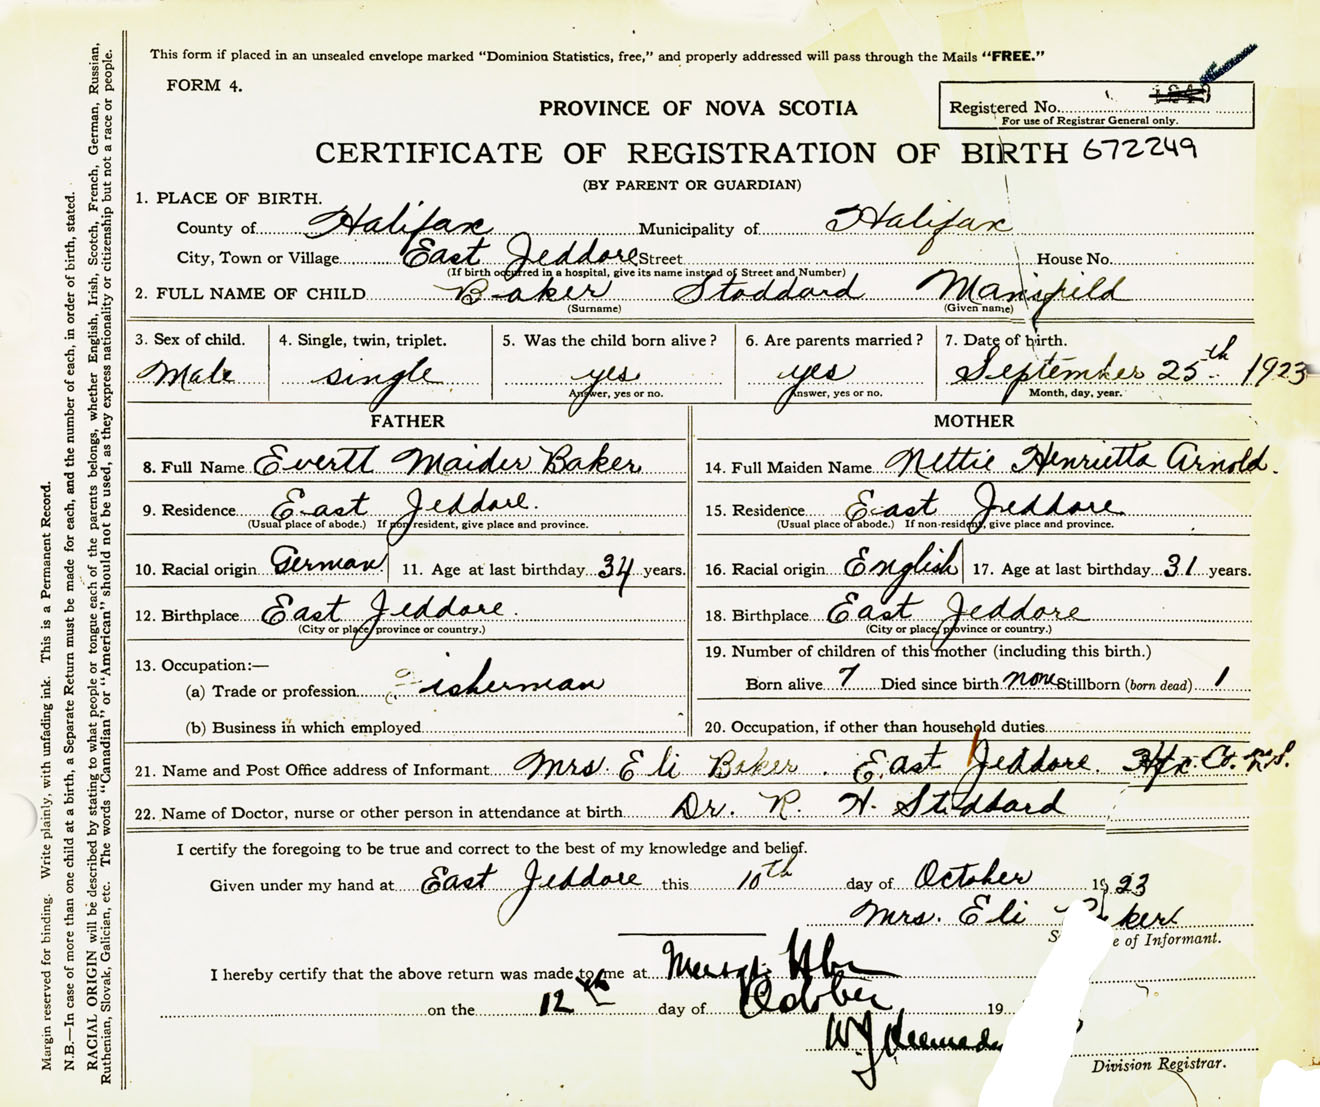 This form if placed in an unsealed envelope marked “Dominion Statistics, free,” and properly addressed will pass through the Mails “FREE.”
FORM 4.
PROVINCE OF NOVA SCOTIA
Registered No.
For use of Registrar General only.
CERTIFICATE OF REGISTRATION OF BIRTH 672249
(BY PARENT OR GUARDIAN)
1. PLACE OF BIRTH.
County of Halifax Municipality of Halifax
City, Town or Village East Jeddore Street House No.
(If birth occurred in a hospital, give its name instead of Street and Number)
2. FULL NAME OF CHILD Baker Stoddard Mansfield
(Surname) (Given name)
3. Sex of child. 4. Single, twin, triplet. 5. Was the child born alive? 6. Are parents married? 7. Date of birth.
Male single yes yes September 25th 1923
Answer, yes or no. Answer, yes or no. Month, day, year.
FATHER MOTHER
8. Full Name Evertt Maider Baker 14. Full Maiden Name Nettie Henrietta Arnold.
9. Residence East Jeddore. 15. Residence East Jeddore
(Usual place of abode.) If non resident, give place and province. (Usual place of abode.) If non-resident, give place and province.
10. Racial origin German 11. Age at last birthday 34 years. 16. Racial origin English 17. Age at last birthday 31 years.
12. Birthplace East Jeddore. 18. Birthplace East Jeddore
(City or place, province or country.) (City or place, province or country.)
13. Occupation:— 19. Number of children of this mother (including this birth.)
(a) Trade or profession Fisherman Born alive 7 Died since birth none Stillborn (born dead) 1
(b) Business in which employed 20. Occupation, if other than household duties
21. Name and Post Office address of Informant Mrs. Eli Baker. East Jeddore. Hfx. Co. N.S.
22. Name of Doctor, nurse or other person in attendance at birth Dr. R. H. Stoddard
I certify the foregoing to be true and correct to the best of my knowledge and belief.
Given under my hand at East Jeddore this 10th day of October 1923
Mrs. Eli Baker
of Informant.
I hereby certify that the above return was made to me at
on the 12th day of October 19
W J Kennedy
Division Registrar.
Margin reserved for binding. Write plainly, with unfading ink. This is a Permanent Record.
N.B.—In case of more than one child at a birth, a Separate Return must be made for each, and the number of each, in order of birth, stated.
RACIAL ORIGIN will be described by stating to what people or tongue each of the parents belongs, whether English, Irish, Scotch, French, German, Russian,
Ruthenian, Slovak, Galician, etc. The words “Canadian” or “American” should not be used, as they express nationality or citizenship but not a race or people.